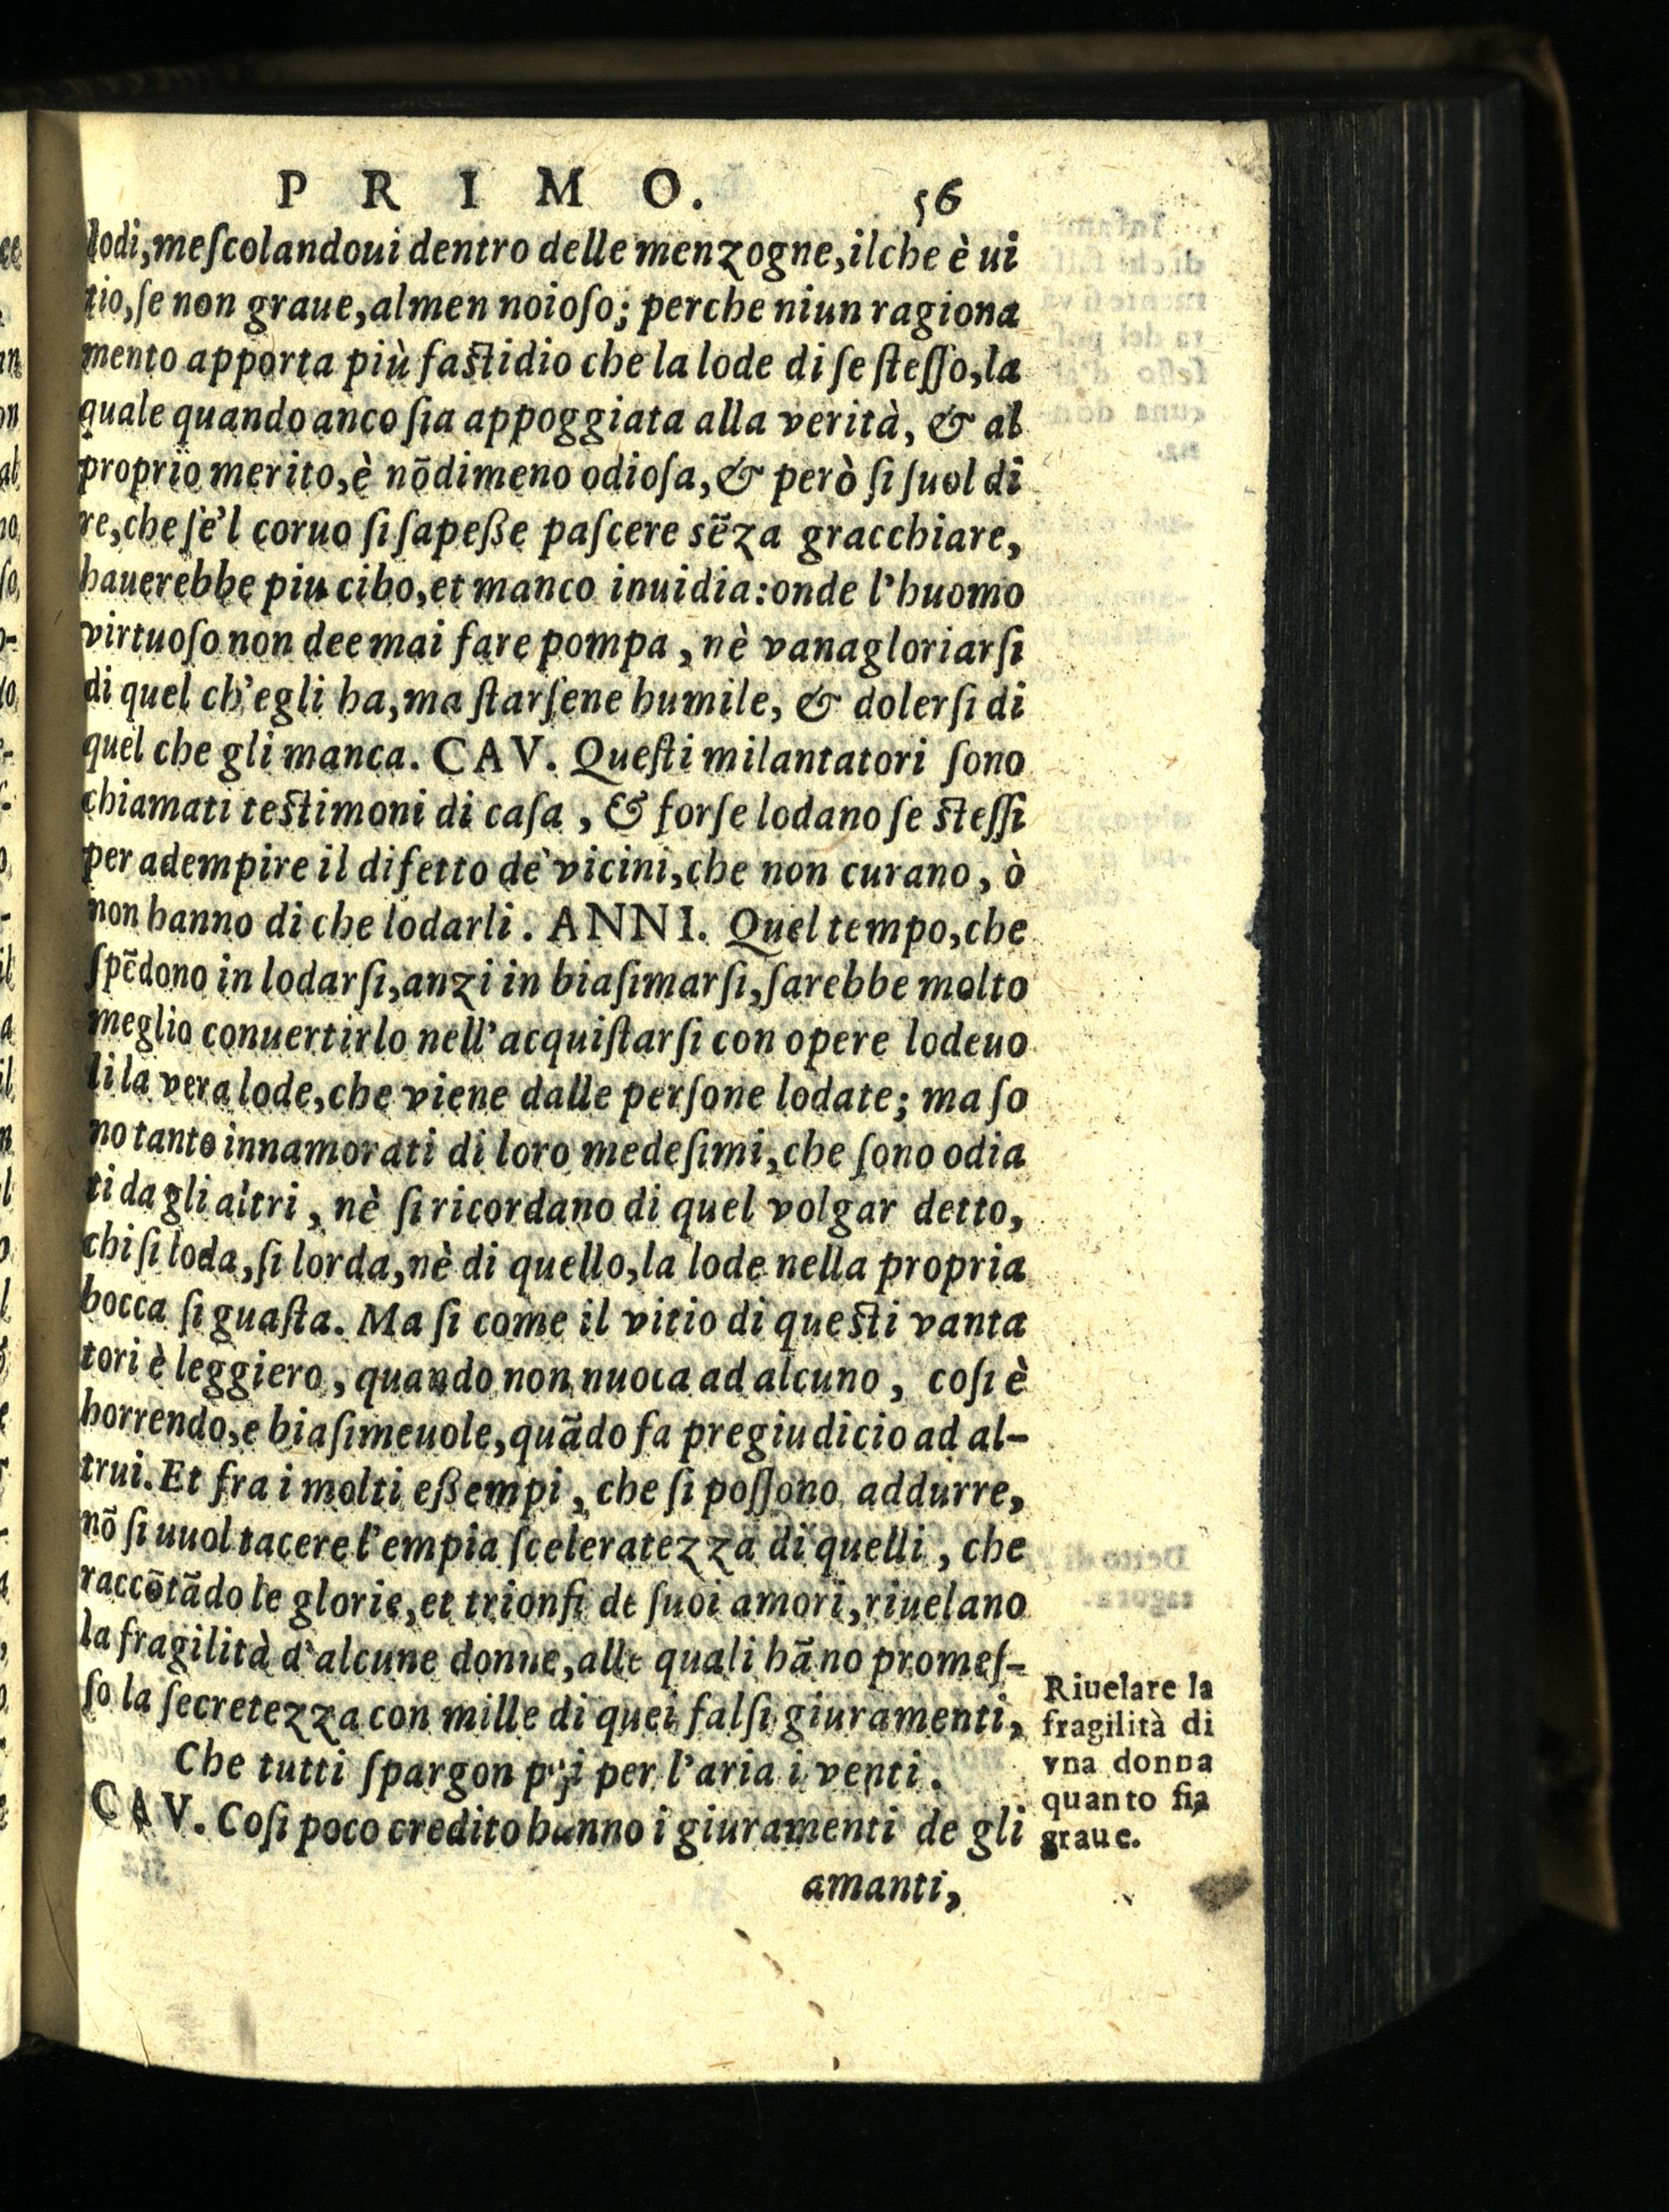 PRIMO. 56
lodi, meſcolandoui dentro delle menzogne, ilche è ui
tio, ſe non graue, almen noioſo; perche niun ragiona
mento apporta più faſtidio che la lode di ſe ſteſſo, la
quale quando anco ſia appoggiata alla verità, & al
proprio merito, è nõdimeno odioſa, & però ſi ſuol di
re, che ſe'l coruo ſi ſapeße paſcere sẽza gracchiare,
hauerebbe piu cibo, et manco inuidia: onde l'huomo
virtuoſo non dee mai fare pompa, nè vanagloriarſi
di quel ch'egli ha, ma ſtarſene humile, & dolerſi di
quel che gli manca. CAV. Queſti milantatori ſono
chiamati teſtimoni di caſa, & forſe lodano ſe ſteſſi
per adempire il difetto de' vicini, che non curano, ò
non hanno di che lodarli. ANNI. Quel tempo, che
ſpẽdono in lodarſi, anzi in biaſimarſi, ſarebbe molto
meglio conuertirlo nell'acquiſtarſi con opere lodeuo
li la vera lode, che viene dalle perſone lodate; ma ſo
no tanto innamorati di loro medeſimi, che ſono odia
ti da gli altri, nè ſi ricordano di quel volgar detto,
chi ſi loda, ſi lorda, nè di quello, la lode nella propria
bocca ſi guaſta. Ma ſi come il vitio di queſti vanta
tori è leggiero, quando non nuoca ad alcuno, coſi è
horrendo, e biaſimeuole, quãdo fa pregiudicio ad al-
trui. Et fra i molti eßempi, che ſi poſſono addurre,
nõ ſi uuol tacere l'empia ſceleratezza di quelli, che
raccõtãdo le glorie, et trionfi de ſuoi amori, riuelano
la fragilità d'alcune donne, alle quali hãno promeſ-
ſo la ſecretezza con mille di quei falſi giuramenti,
Che tutti ſpargon poi per l'aria i venti.
CAV. Coſi poco credito hanno i giuramenti de gli
amanti,
Riuelare la
fragilità di
vna donna
quanto ſia
graue.